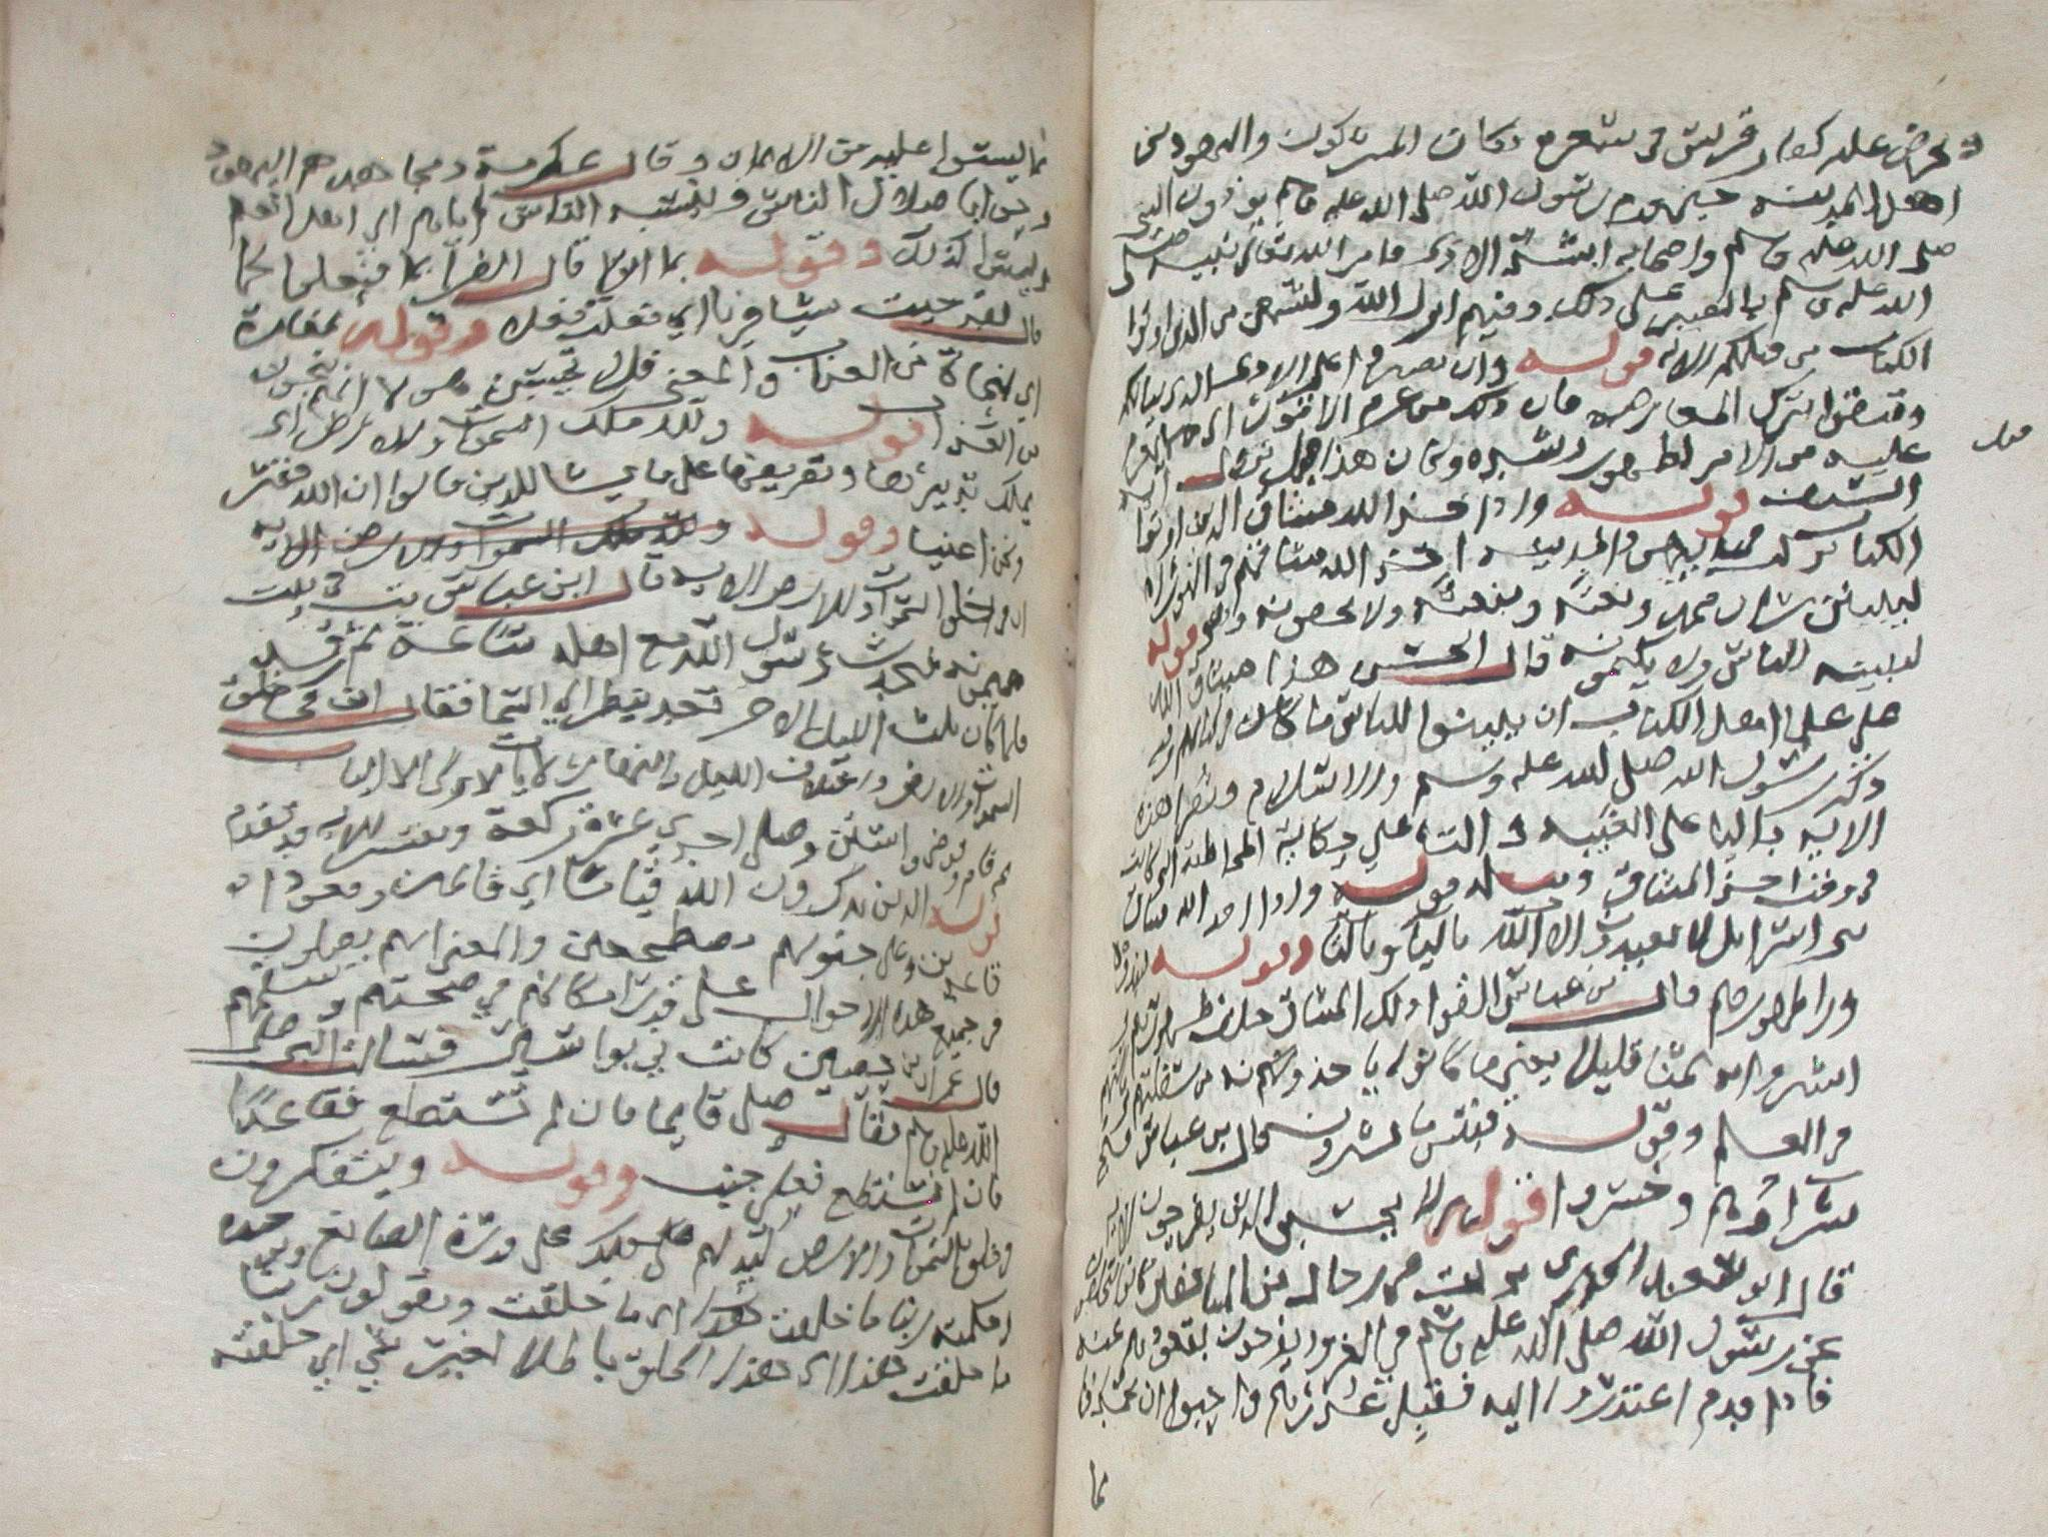 ويحرض عليه كفار قريش في شعره وكان المشركون واليهود من
اهل المدينة حين قدم رسول الله صلى الله عليه وسلم يوذون النبي
صلى الله عليه وسلم واصحابه اشد الاذى فامر الله تعالى نبيه صلى
الله عليه وسلم بالصبر على ذلك وفيهم انزل الله ولتسمعن من الذين اوتوا
الكتاب من قبلكم الاية قوله وان تصبروا على الاذى الذي ينالكم
وتتقوا بترك المعارضة فان ذلك من عزم الامور اي
عليه من الامر لظهور رشده وكان هذا قبل نزول اية
السيف قوله واذ اخذ الله ميثاق الذين اوتوا
الكتاب اخذ الله ميثاقهم في التوراة
ليبينن شان محمد ونعته ومبعثه ولا يخفونه وهو قوله
لتبيننه للناس ولا تكتمونه قال الحسن هذا ميثاق الله
على علما اهل الكتاب ان يبينوا للناس ما في كتابهم وفيه
ذكر رسول الله صلى الله عليه وسلم والاسلام وتقرا هذه
الاية باليا على الغيبة والتا على حكاية المخاطبة التي كانت
في وقت اخذ الميثاق ومثله قوله واذ اخذ الله ميثاق
بني اسرائيل لا تعبدون الا الله باليا وبالتا وقوله فنبذوه
ورا ظهورهم قال ابن عباس القوا ذلك الميثاق خلف ظهورهم
اشتروا به ثمنا قليلا يعني ما كانوا ياخذونه من سفلتهم
في العلم وقوله فبئس ما يشترون قال ابن عباس قبح
شراوهم وخسروا قوله لا تحسبن الذين يفرحون الاية
قال ابو سعيد الخدري نزلت في رجال من المنافقين كانوا يتخلفون
عن رسول الله صلى الله عليه وسلم في الغزو ويفرحون بقعودهم عنه
فاذا قدم اعتذروا اليه فيقبل عذرهم واحبوا ان يحمدوا
بما
بما ليسوا عليه من الايمان وقال عكرمة ومجاهد هم اليهود
فرحوا باضلال الناس وبنسبة الناس اياهم الى العلم
وليسوا كذلك وقوله بما اتوا قال الفرا بما فعلوا كما
قال لقد جيت شيا فريا اي فعلت فعلا وقوله بمفازة
اي بمنجاة من العذاب والمعنى فلا تحسبن هولا انهم ينجون
من العذاب قوله ولله ملك السموات والارض اي
يملك تدبيرهما وتصريفهما على ما يشا للذين قالوا ان الله فقير
ونحن اغنيا وقوله ولله ملك السموات والارض الاية
ان في خلق السموات والارض الاية قال ابن عباس بت في بيت
ميمونة فتحدث رسول الله مع اهله ساعة ثم رقد
فلما كان ثلث الليل الاخر قعد ينظر الى السما فقال ان في خلق
السموات والارض واختلاف الليل والنهار لايات لاولي الالباب
ثم قام وتوضى واستن وصلى احدى عشرة ركعة وتفسير الاية قد تقدم
قوله الذين يذكرون الله قياما اي قائمين وقعودا
قاعدين وعلى جنوبهم مضطجعين والمعنى انهم يصلون
في جميع هذه الاحوال على قدر امكانهم في صحتهم وسقمهم
قال عمران بن حصين كانت بي بواسير فسالت النبي صلى
الله عليه وسلم فقال صل قايما فان لم تستطع فقاعدا
فان لم تستطع فعلى جنب وقوله ويتفكرون
في خلق السموات والارض ليدلهم ذلك على قدرة الصانع
وحكمته ربنا ما خلقت هذا اي ما خلقت ويقولون ربنا
ما خلقت هذا اي هذا الخلق باطلا اي خلقته